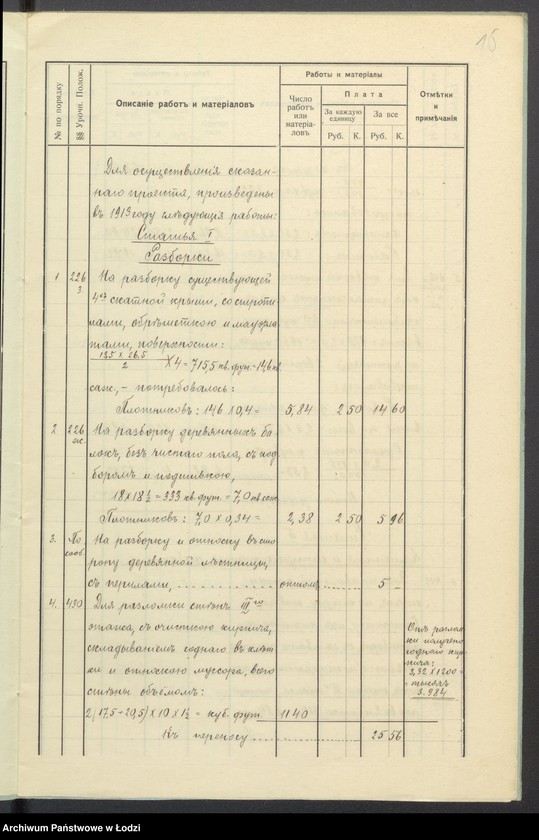 15
№ по порядку
§§ Урочн. Полож.
Описаніе работъ и матеріаловъ
Работы и матеріалы
Число
работъ
или
матеріа-
ловъ
Плата
За каждую
единицу
За все
Руб. К. Руб. К.
Отмѣтки
и
примѣчанія
Для осуществленія сказан-
наго проекта, произведены
въ 1913 году слѣдующія работы:
Статья I
Разборки
1 226 На разборку существующей
3. 4ех скатной крыши, со стропи-
лами, обрѣшеткою и мауэрла-
тами, поверхности:
13,5 × 26,5 / 2 × 4 = 715,5 кв. фут. = 14,6 кв
саж., – потребовалось:
Плотниковъ: 14,6 × 0,4 = 5,84 2 50 14 60
2 226 На разборку деревянныхъ ба-
локъ, безъ чистаго пола, съ под
боромъ и подшивкою,
18 × 18 ½ = 333 кв. фут. = 7,0 кв саж
Плотниковъ: 7,0 × 0,34 = 2,38 2 50 5 96
3. По На разборку и относку въ сто-
сооб. рону деревянной лѣстницы,
съ перилами, оптомъ 5 –
4. 430 Для разломки стѣнъ III го
этажа, съ очисткою кирпича,
складываніемъ годнаго въ клѣт
ки и относкою мусора, всего
стѣны объемомъ:
2 (17,5 + 20,5) × 10 × 1½ = куб. фут. 1140
Къ переносу 25 56
Отъ разлом
ки получено
годнаго кир
пича:
3,32 × 1200 =
тысячъ
3.984
Archiwum Państwowe w Łodzi